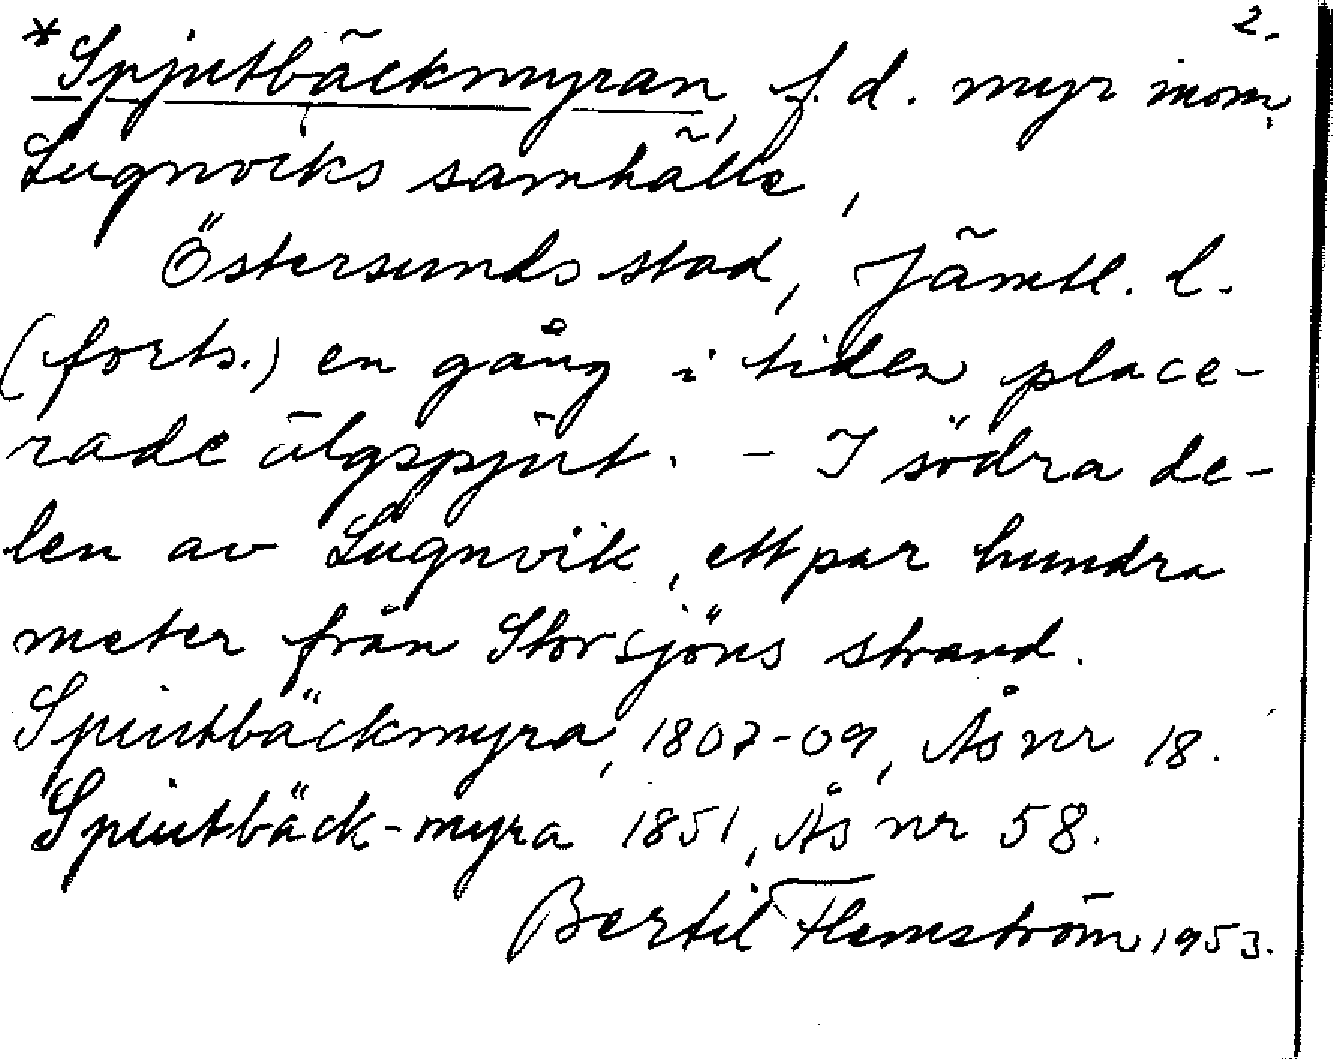 2.
*Spjutbäckmyran, f.d. myr inom
Lugnviks samhälle,
Östersunds stad, Jämtl. l.
(forts.) en gång i tiden place-
rade älgspjut. - I södra de-
len av Lugnvik, ett par hundra
meter från Storsjöns strand.
Spiutbäckmyra, 1807-09, Ås nr 18.
Spiutbäck-myra 1851, Ås nr 58.
Bertil Flemström 1953.